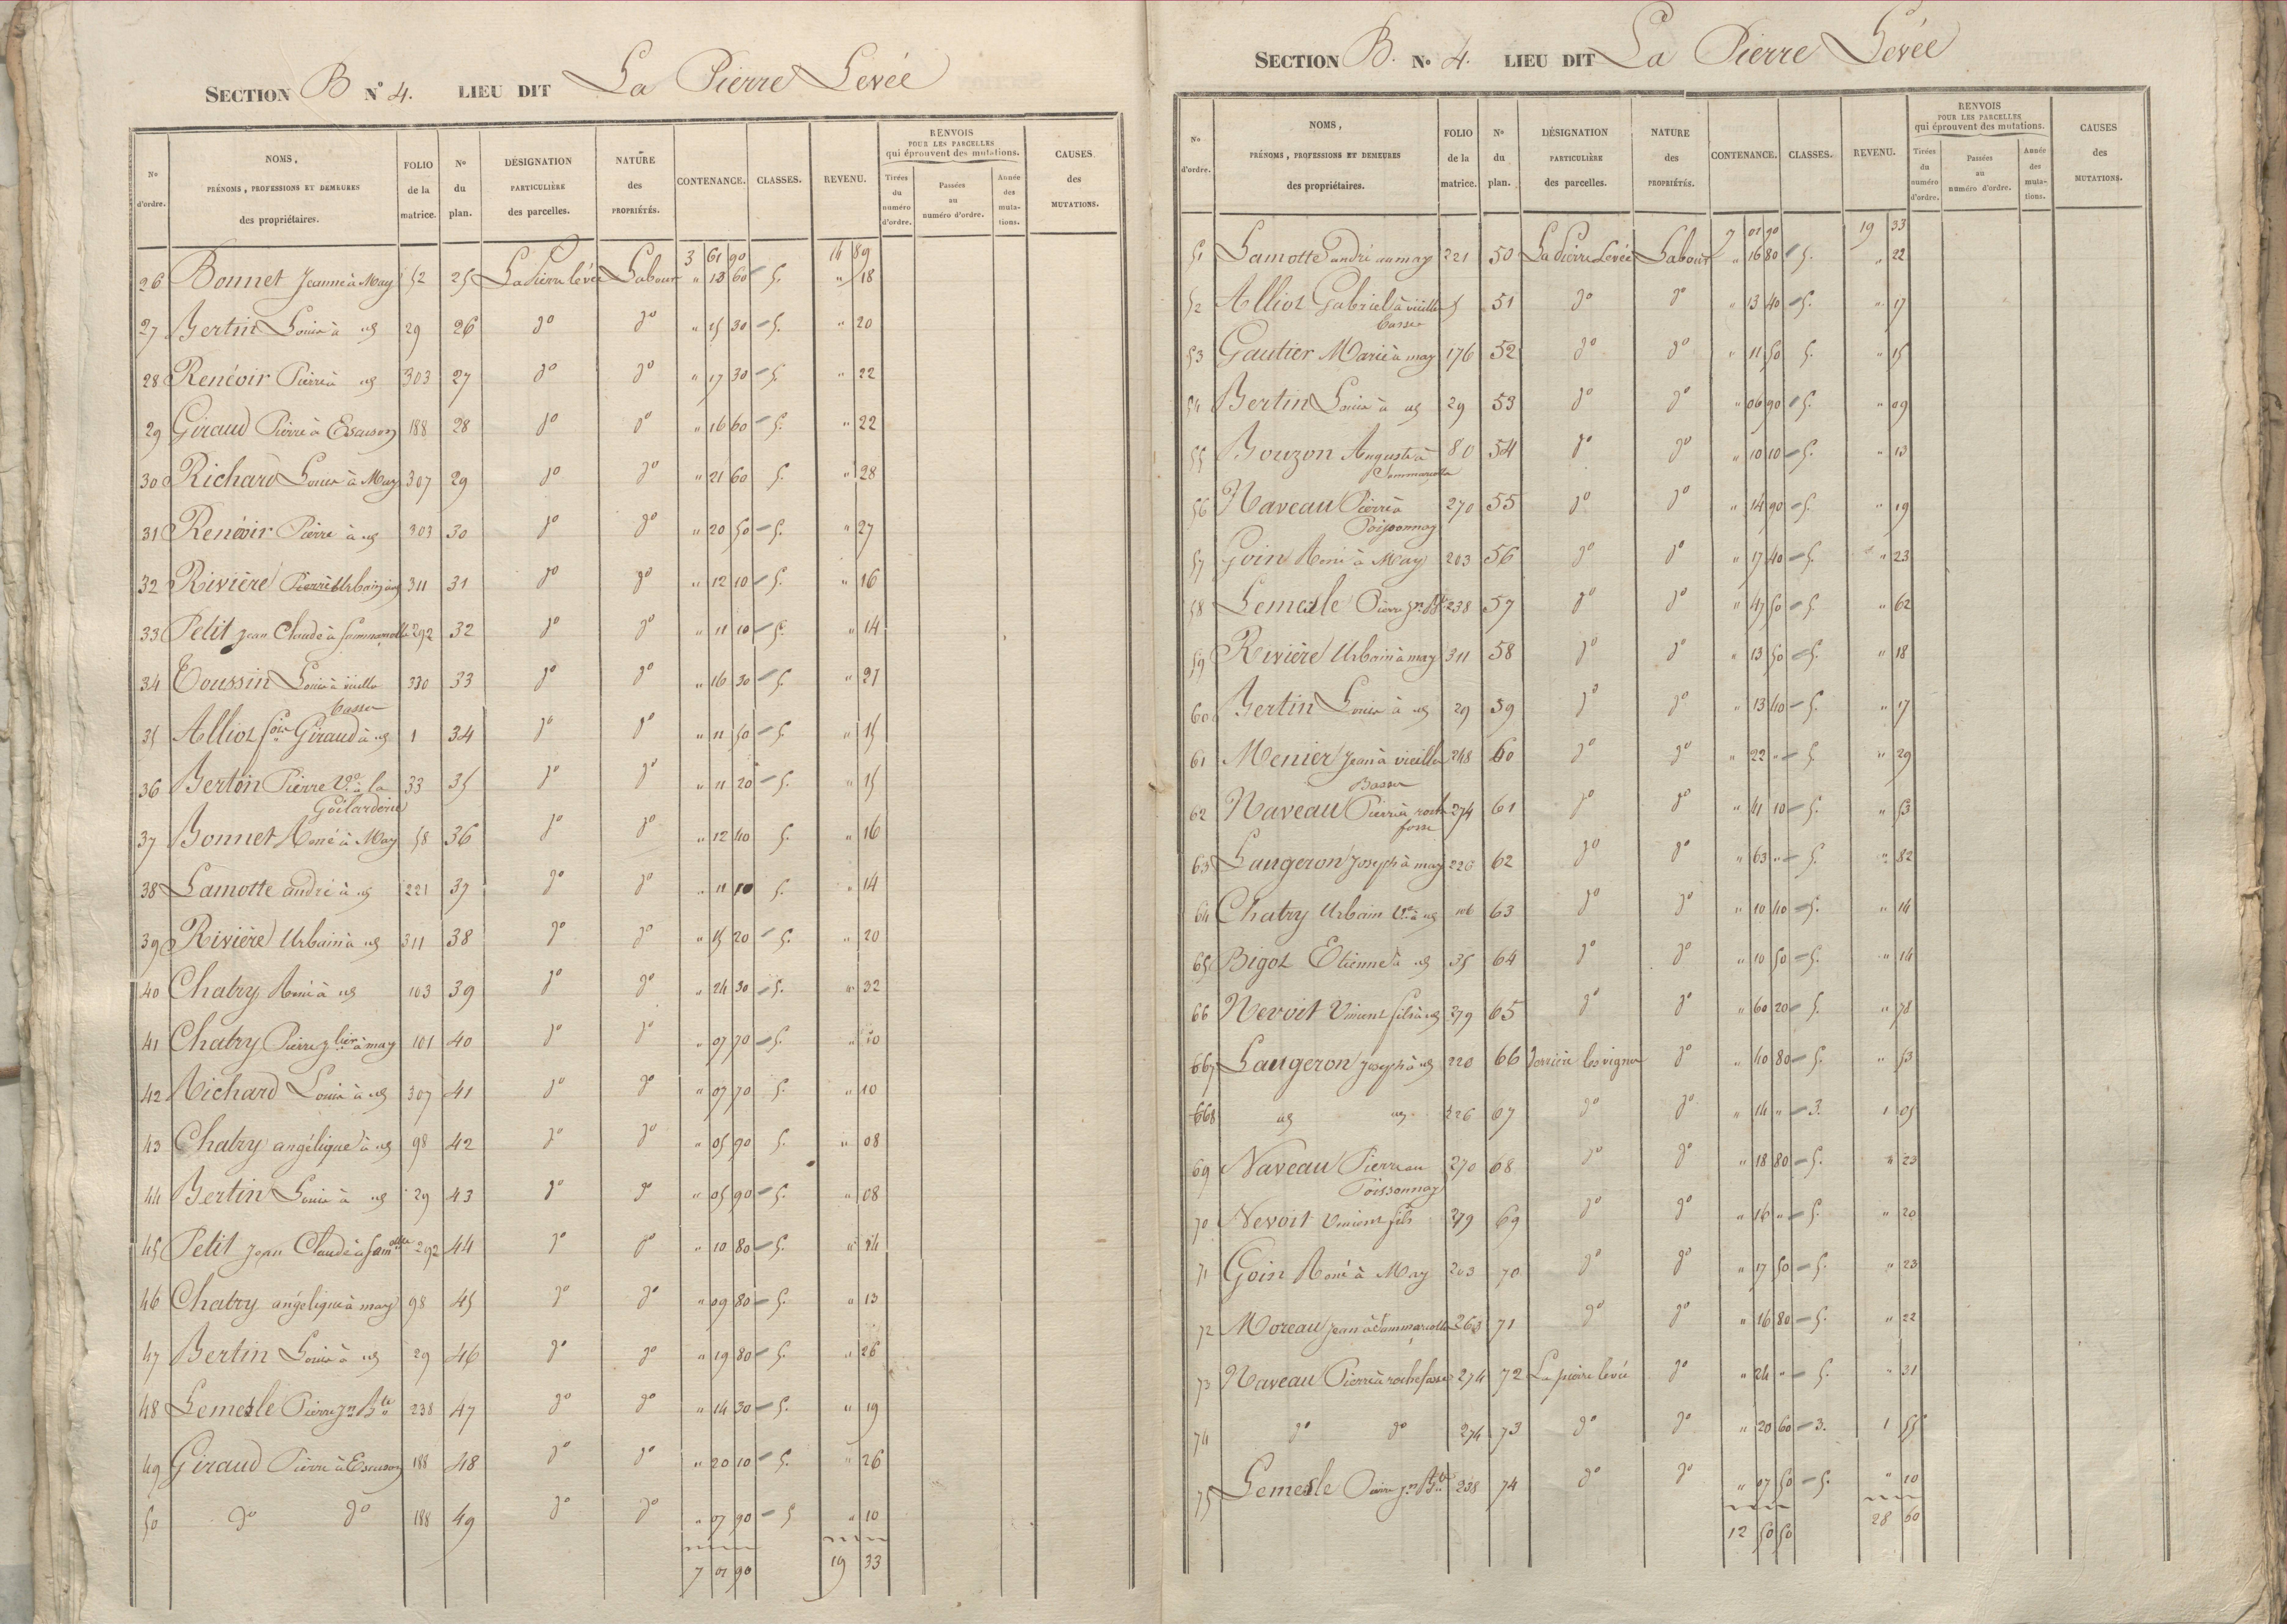 SECTION B N° 4. LIEU DIT La Pierre Levée
N° d'ordre. NOMS, PRÉNOMS, PROFESSIONS ET DEMEURES des propriétaires. FOLIO de la matrice. N° du plan. DÉSIGNATION PARTICULIÈRE des parcelles. NATURE des PROPRIÉTÉS. CONTENANCE. CLASSES. REVENU. RENVOIS POUR LES PARCELLES qui éprouvent des mutations. Tirées du numéro d'ordre. Passées au numéro d'ordre. Année des mutations. CAUSES des MUTATIONS.
3 61 90 16 89
26 Bonnet Jeanne à May 52 25 La Pierre levée Labour " 13 60 5. " 18
27 Bertin Louis à id 29 26 do do " 15 30 5. " 20
28 Renévoir Pierre à id 303 27 do do " 17 30 5. " 22
29 Giraud Pierre à 188 28 do do " 16 60 5. " 22
30 Richard Louis à May 307 29 do do " 21 60 5. " 28
31 Renévoir Pierre à id 303 30 do do " 20 50 5. " 27
32 Rivière Pierre Urbain à id 311 31 do do " 12 10 5. " 16
33 Petit Jean Claude à Sammarcolle 292 32 do do " 11 10 5. " 14
34 Toussin Louis à vieilles 330 33 do do " 16 30 5. " 21
basses
35 Alliot fois Giraud à id 1 34 do do " 11 50 5 " 15
36 Berton Pierre Ve à la 33 35 do do " 11 20 5. " 15
37 Bonnet René à May 58 36 do do " 12 40 5. " 16
38 Lamotte andré à id 221 37 do do " 11 10 5. " 14
39 Rivière Urbain à id 311 38 do do " 15 20 5. " 20
40 Chatry René à id 103 39 do do " 24 30 5. " 32
41 Chatry Pierre à may 101 40 do do " 07 70 5. " 10
42 Richard Louis à id 307 41 do do " 07 70 5. " 10
43 Chatry angélique à id 98 42 do do " 05 90 5. " 08
44 Bertin Louis à id 29 43 do do " 05 90 5. " 08
45 Petit Jean Claude à Samolle 292 44 do do " 10 80 5. " 14
46 Chatry angélique à may 98 45 do do " 09 80 5. " 13
47 Bertin Louis à id 29 46 do do " 19 80 5. " 26
48 Lemesle Pierre Jn Bte 238 47 do do " 14 30 5. " 19
49 Giraud Pierre à 188 48 do do " 20 10 5. " 26
50 do do 188 49 do do " 07 90 5 " 10
7 01 90 19 33
SECTION B. N° 4. LIEU DIT La Pierre Levée
N° d'ordre. NOMS, PRÉNOMS, PROFESSIONS ET DEMEURES des propriétaires. FOLIO de la matrice. N° du plan. DÉSIGNATION PARTICULIÈRE des parcelles. NATURE des PROPRIÉTÉS. CONTENANCE. CLASSES. REVENU. RENVOIS POUR LES PARCELLES qui éprouvent des mutations. Tirées du numéro d'ordre. Passées au numéro d'ordre. Année des mutations. CAUSES des MUTATIONS.
7 01 90 19 33
51 Lamotte andré au may 221 50 La Pierre Levée Labour " 16 80 5. " 22
52 Alliot Gabriel à vieilles 5 51 do do " 13 40 5. " 17
basses
53 Gautier Marie à may 176 52 do do " 11 50 5. " 15
54 Bertin Louis à id 29 53 do do " 06 90 5. " 09
55 Bouzon Auguste à 80 54 do do " 10 10 5. " 13
Sammarcolle
56 Naveau Pierre à 270 55 do do " 14 90 5. " 19
Poissonnay
57 Goin René à May 203 56 do do " 17 40 5. " 23
58 Lemesle Pierre Jn Bte 238 57 do do " 47 50 5 " 62
59 Rivière Urbain à may 311 58 do do " 13 50 5. " 18
60 Bertin Louis à id 29 59 do do " 13 40 5. " 17
61 Menier Jean à vieilles 248 60 do do " 22 " 5 " 29
Basses
62 Naveau Pierre à roche 274 61 do do " 41 10 5. " 53
fosse
63 Laugeron Joseph à may 226 62 do do " 63 " 5. " 82
64 Chatry Urbain Ve à id 106 63 do do " 10 40 5. " 14
65 Bigot Etienne à id 35 64 do do " 10 50 5. " 14
66 Nevoit Vincent fils à id 279 65 do do " 60 20 5. " 78
67 Laugeron Joseph à id 226 66 Derrière les vignes do " 40 80 5. " 53
68 id id 226 67 do do " 14 " 3. 1 05
69 Naveau Pierre au 270 68 do do " 18 80 5. " 23
Poissonnay
70 Nevoit Vincent fils 279 69 do do " 16 " 5. " 20
71 Goin René à May 203 70 do do " 17 50 5. " 23
72 Moreau Jean à Sammarcolle 263 71 do do " 16 80 5. " 22
73 Naveau Pierre à rochefosse 274 72 La pierre levée do " 24 " 5. " 31
74 do do 274 73 do do " 20 60 3. 1 55
75 Lemesle Pierre Jn Bte 238 74 do do " 07 50 5. " 10
12 50 50 28 60